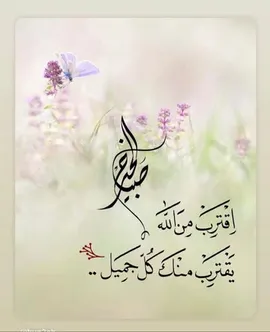 صباح الخير
اِقْتَرِبْ مِنَ اللّٰه
يَقْتَرِبْ مِنْكَ كُلّ جَمِيل ..